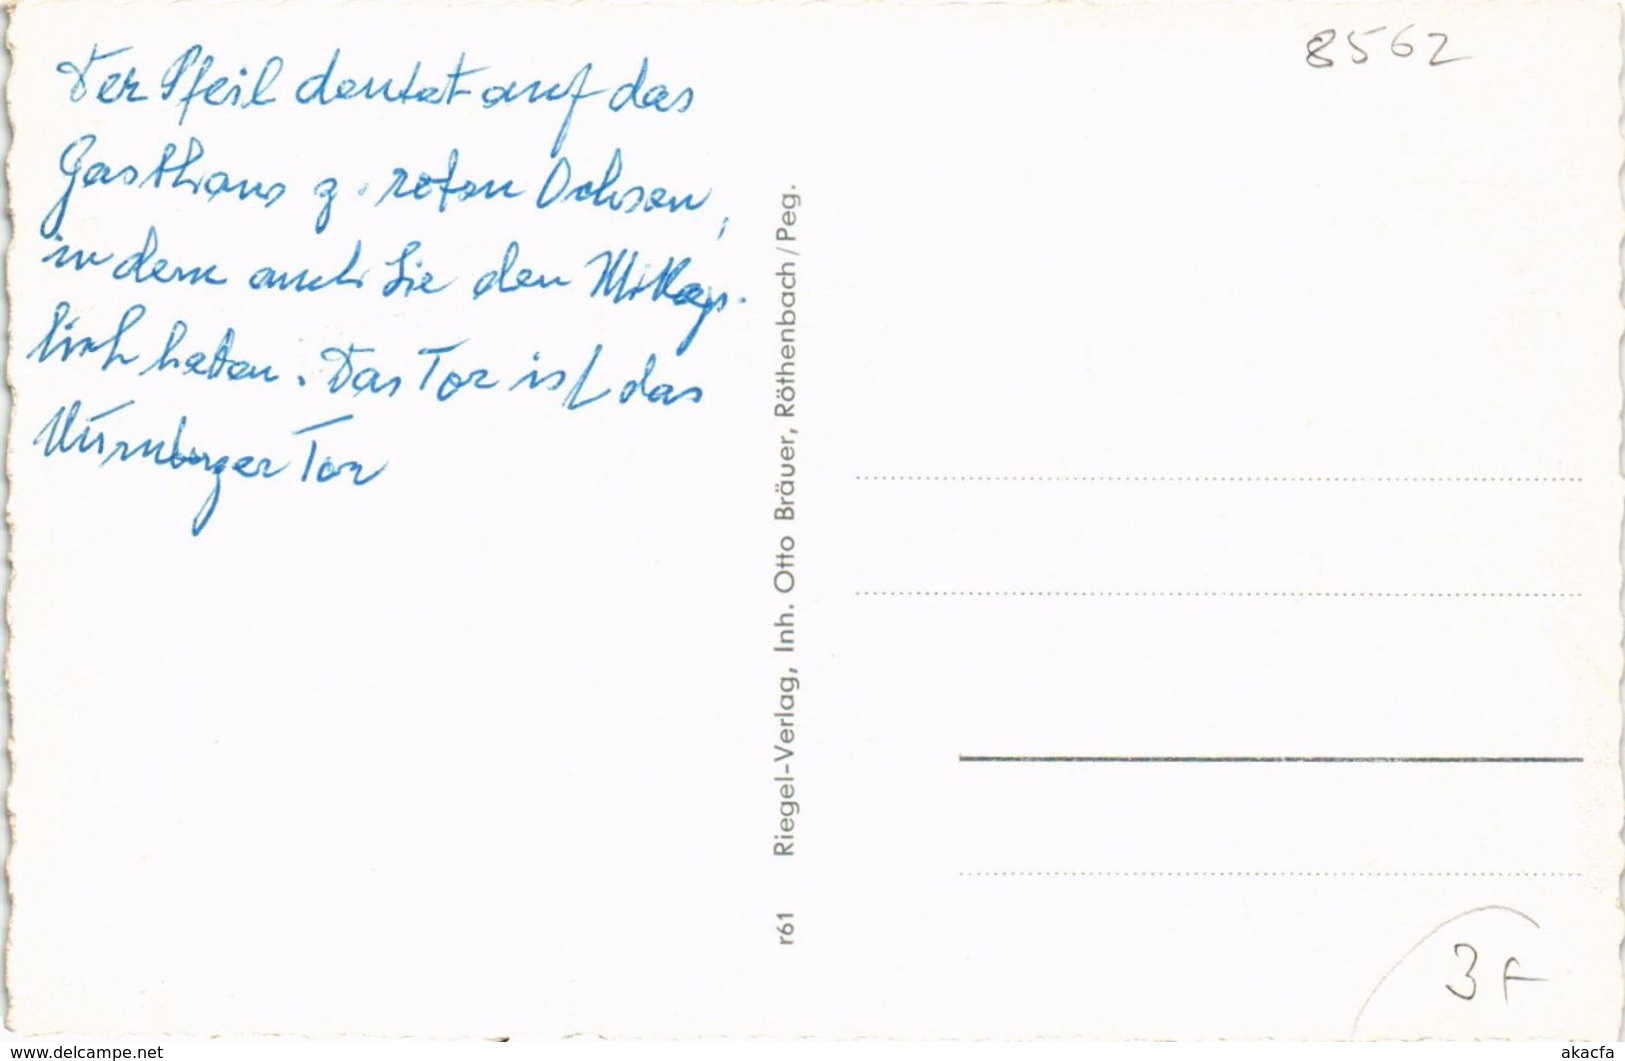 Der Pfeil deutet auf das
Gasthaus z. roten Ochsen,
in dem auch Sie den Mittags-
tisch hatten. Das Tor ist das
Nürnberger Tor
8562
r61 Riegel-Verlag, Inh. Otto Bräuer, Röthenbach/Peg.
3F
www.delcampe.net
akacfa